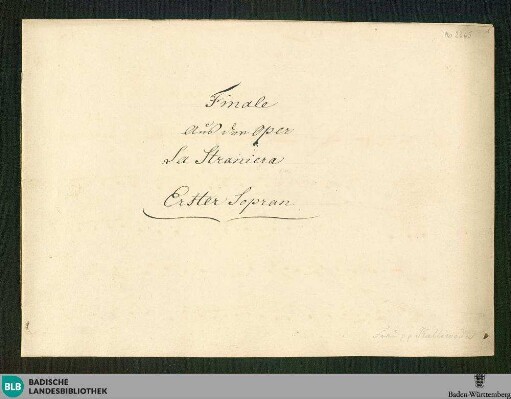 Finale
Aus der Oper
La Straniera
Erster Sopran
BLB
BADISCHE
LANDESBIBLIOTHEK
Baden-Württemberg